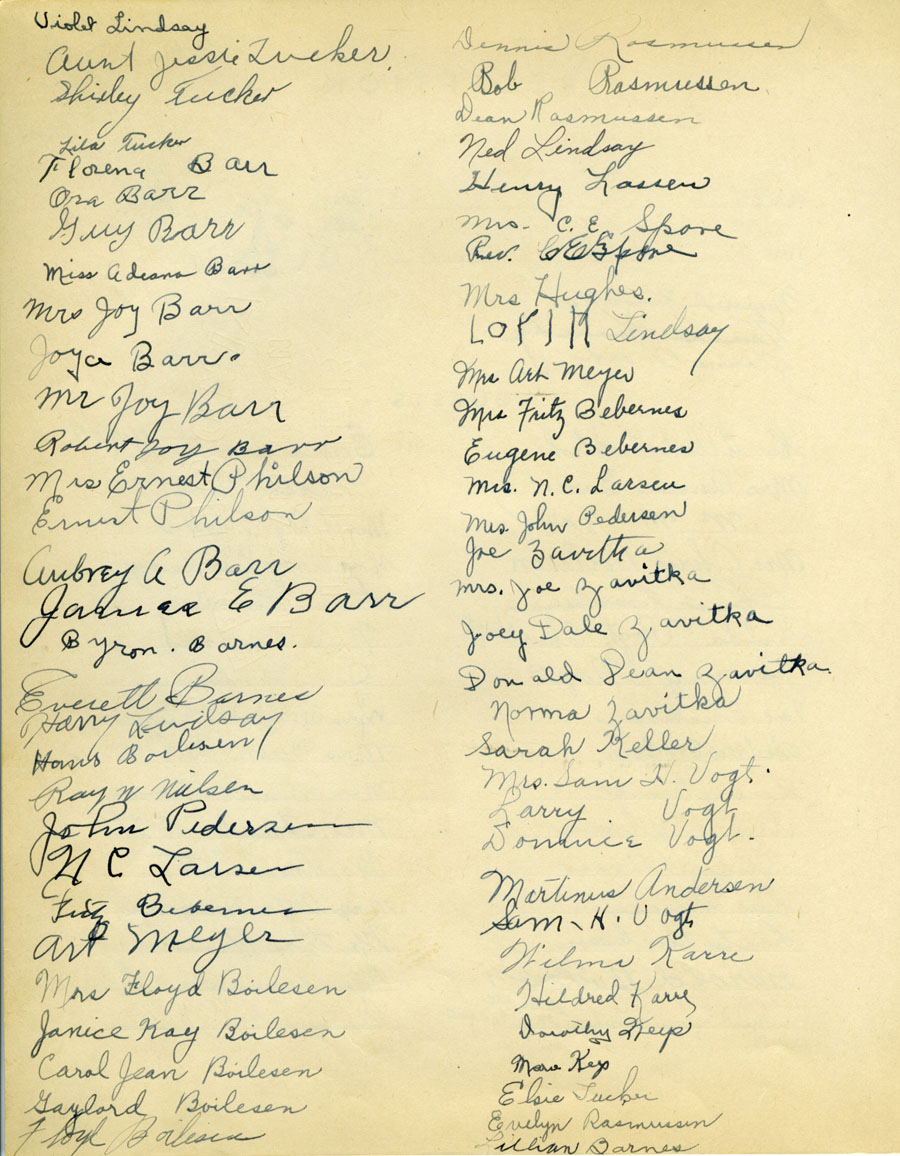 Violet Lindsay
Aunt Jessie Tucker.
Shirley Tucker
Lila Tucker
Florena Barr
Ora Barr
Guy Barr
Miss Adeana Barr
Mrs Joy Barr
Joyce Barr.
Mr Joy Barr
Robert Joy Barr
Mrs Ernest Philson
Ernest Philson
Aubrey A Barr
James E Barr
Byron. Barnes.
Everett Barnes
Harry Lindsay
Hans Boilesen
Ray N Nielsen
John Pedersen
N C Larsen
Fritz Bebernes
Art Meyer
Mrs Floyd Boilesen
Janice Kay Boilesen
Carol Jean Boilesen
Gaylord Boilesen
Floyd Boilesen
Dennis Rasmussen
Bob Rasmussen
Dean Rasmussen
Ned Lindsay
Henry Lassen
Mrs. C. E. Spore
Rev. C E Spore
Mrs Hughes.
Lorin Lindsay
Mrs Art Meyer
Mrs Fritz Bebernes
Eugene Bebernes
Mrs. N. C. Larsen
Mrs John Pedersen
Joe Zavitka
Mrs. Joe Zavitka
Joey Dale Zavitka
Donald Dean Zavitka
Norma Zavitka
Sarah Keller
Mrs. Sam H. Vogt.
Larry Vogt
Donnice Vogt.
Martinus Andersen
Sam H. Vogt
Wilma Karre
Hildred Karre
Dorothy Keep
Keep
Elsie Tucker
Evelyn Rasmussen
Lillian Barnes